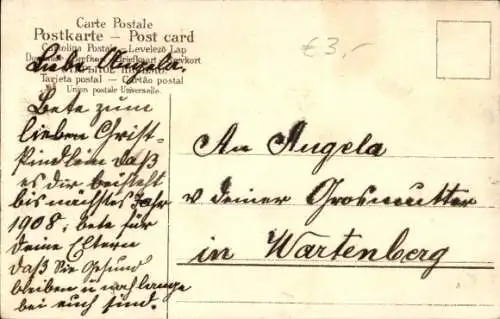 Carte Postale
Postkarte - Post card
Cartolina Postale - Levelező Lap
Briefkort
Tarjeta postal - Cartão postal
Union postale Universelle.
€3,-
Liebe Angela.
Bete zum
lieben Christ-
kindlein daß
es dir beisteht
bis nächstes Jahr
1908, bete für
deine Eltern
daß Sie Gesund
bleiben u noch lange
bei euch sind.
An Angela
v deiner Grosmutter
in Wartenberg